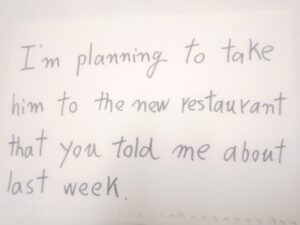 I'm planning to take
him to the new restaurant
that you told me about
last week.